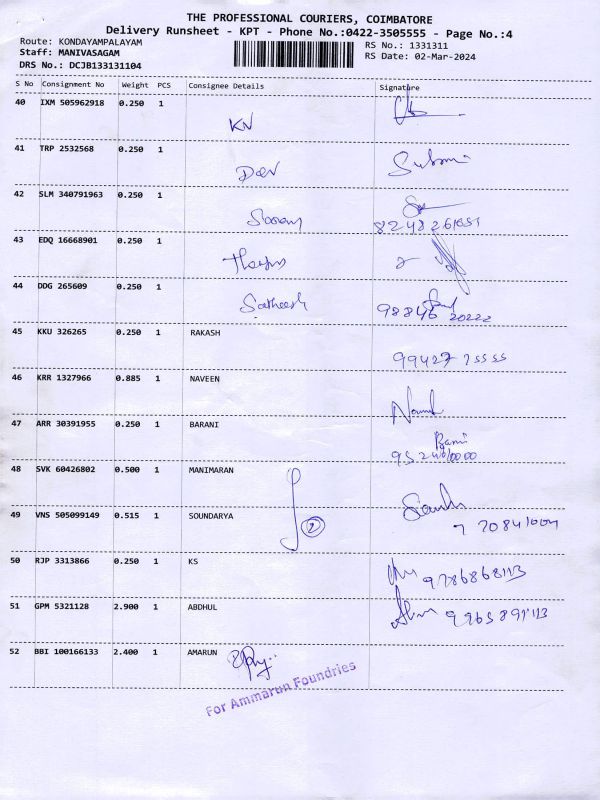 THE PROFESSIONAL COURIERS, COIMBATORE
Delivery Runsheet - KPT - Phone No.:0422-3505555 - Page No.:4
Route: KONDAYAMPALAYAM RS No.: 1331311
Staff: MANIVASAGAM RS Date: 02-Mar-2024
DRS No.: DCJB133131104
S No Consignment No Weight PCS Consignee Details Signature
40 IXM 505962918 0.250 1
KN
41 TRP 2532568 0.250 1
Dev
42 SLM 340791963 0.250 1
Saran
43 EDQ 16668901 0.250 1
44 DDG 265609 0.250 1
Satheesh
98846 20222
45 KKU 326265 0.250 1 RAKASH
99427 75555
46 KRR 1327966 0.885 1 NAVEEN
47 ARR 30391955 0.250 1 BARANI
48 SVK 60426802 0.500 1 MANIMARAN
49 VNS 505099149 0.515 1 SOUNDARYA
2
50 RJP 3313866 0.250 1 KS
9786868113
51 GPM 5321128 2.900 1 ABDHUL
52 BBI 100166133 2.400 1 AMARUN
For Ammarun Foundries